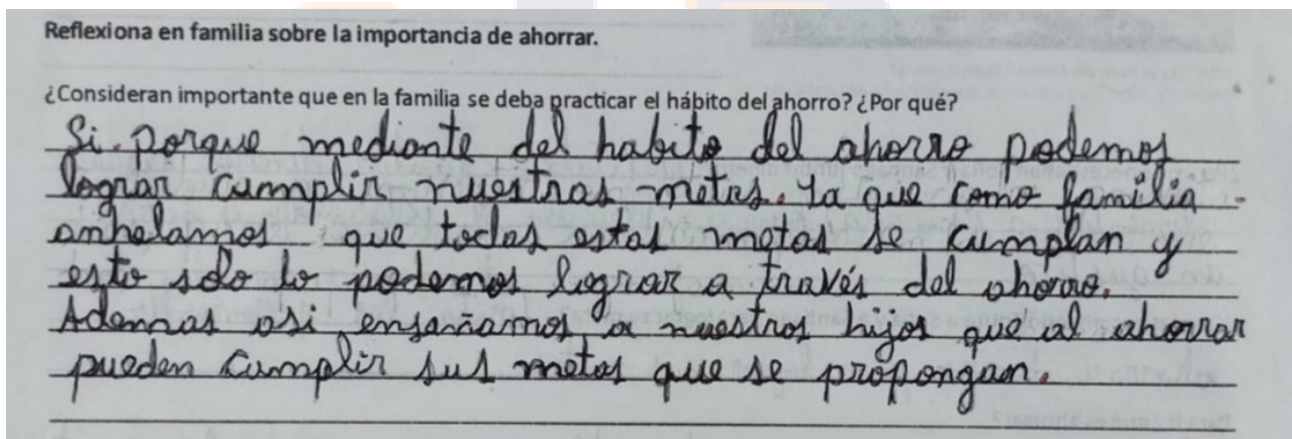 Reflexiona en familia sobre la importancia de ahorrar.
¿Consideran importante que en la familia se deba practicar el hábito del ahorro? ¿Por qué?
Si. porque mediante del habito del ahorro podemos
lograr cumplir nuestras metas. ya que como familia
anhelamos que todas estas metas se cumplan y
esto solo lo podemos lograr a través del ahorro.
Ademas asi enseñamos a nuestros hijos que al ahorrar
pueden cumplir sus metas que se propongan.